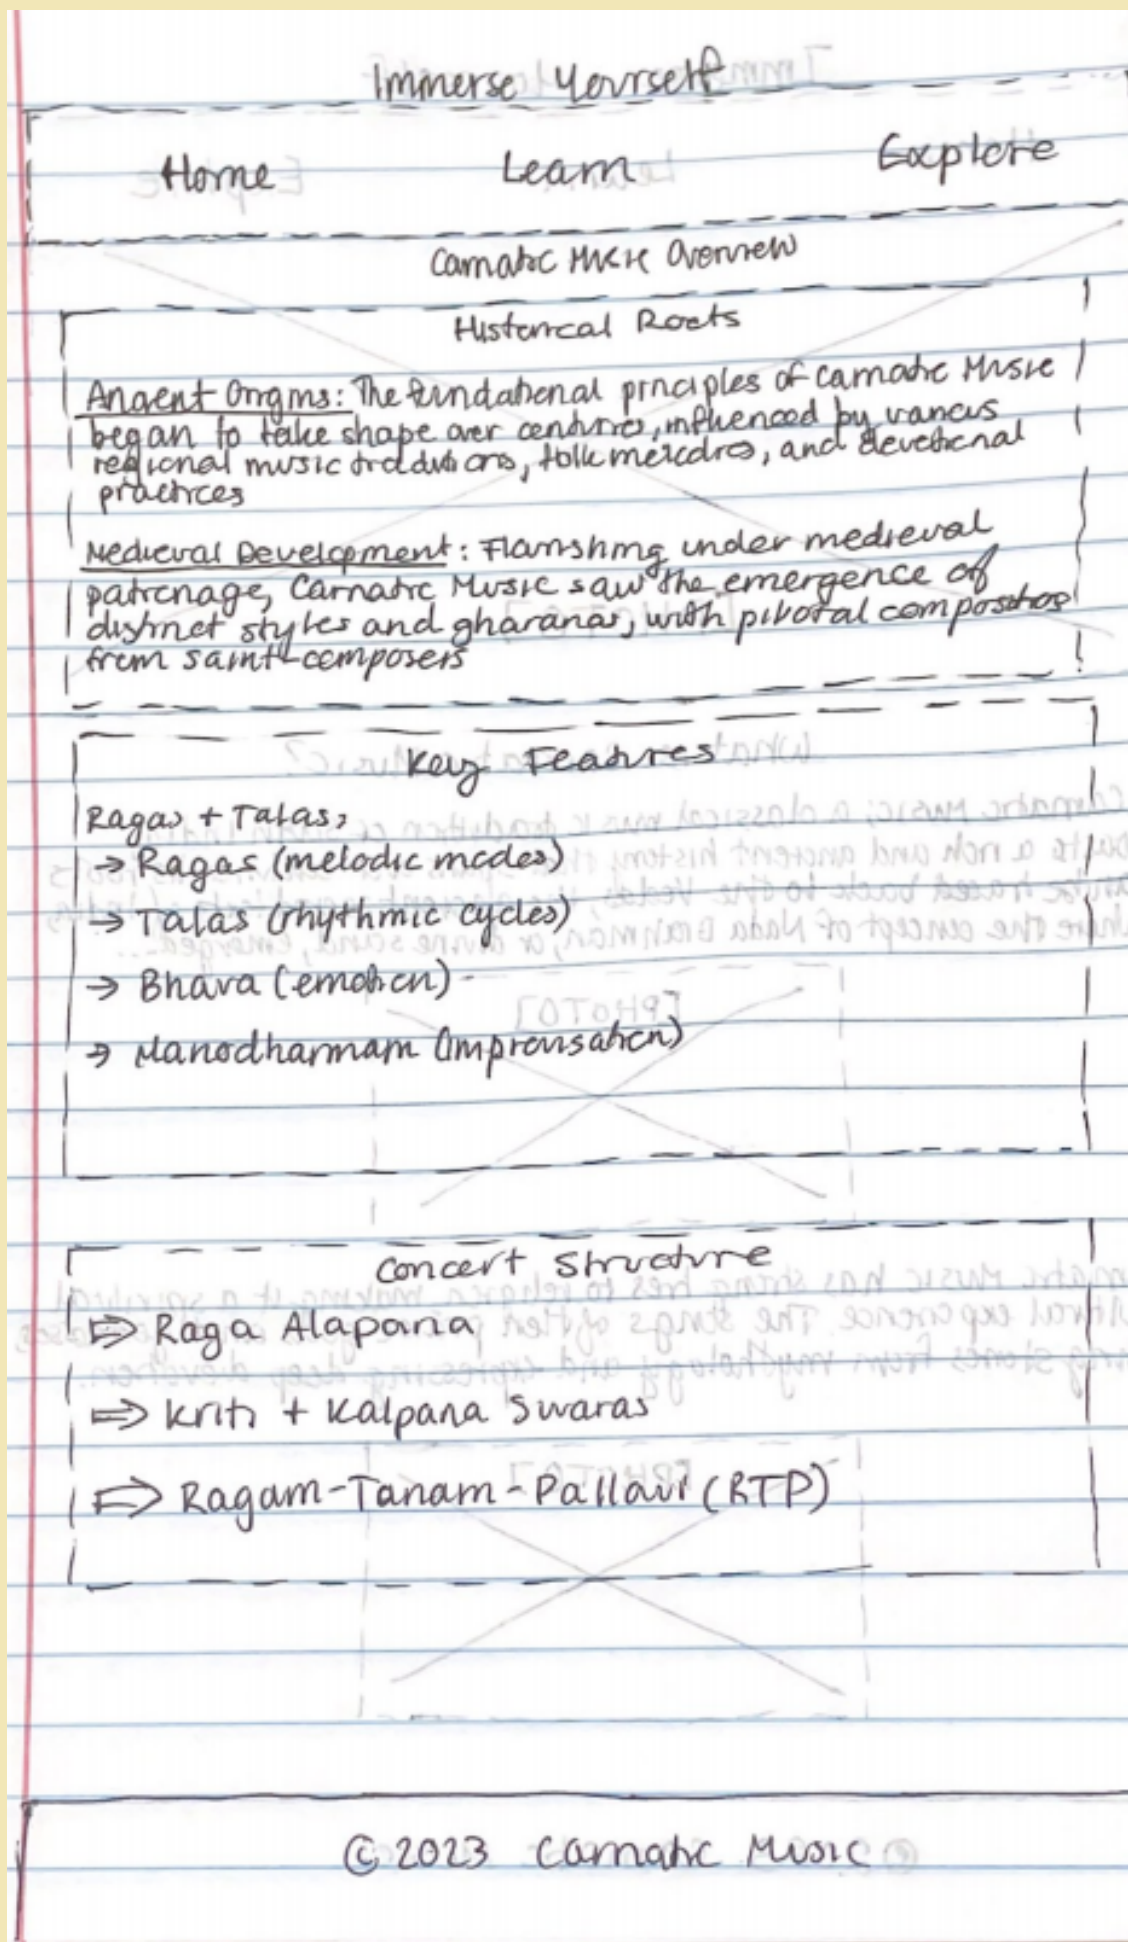 Immerse Yourself
Home Learn Explore
Carnatic Music Overview
Historical Roots
Ancient Origins: The fundational principles of Carnatic Music
began to take shape over centuries, influenced by various
regional music traditions, folk melodies, and devotional
practices
Medieval Development: Flourishing under medieval
patronage, Carnatic Music saw the emergence of
distinct styles and gharanas, with pivotal compositios
from saint-composers
Key Features
Ragas + Talas:
→ Ragas (melodic modes)
→ Talas (rhythmic cycles)
→ Bhava (emotion)
→ Manodharmam (improvisation)
Concert Structure
⇒ Raga Alapana
⇒ Kriti + Kalpana Swaras
⇒ Ragam-Tanam-Pallavi (RTP)
© 2023 Carnatic Music